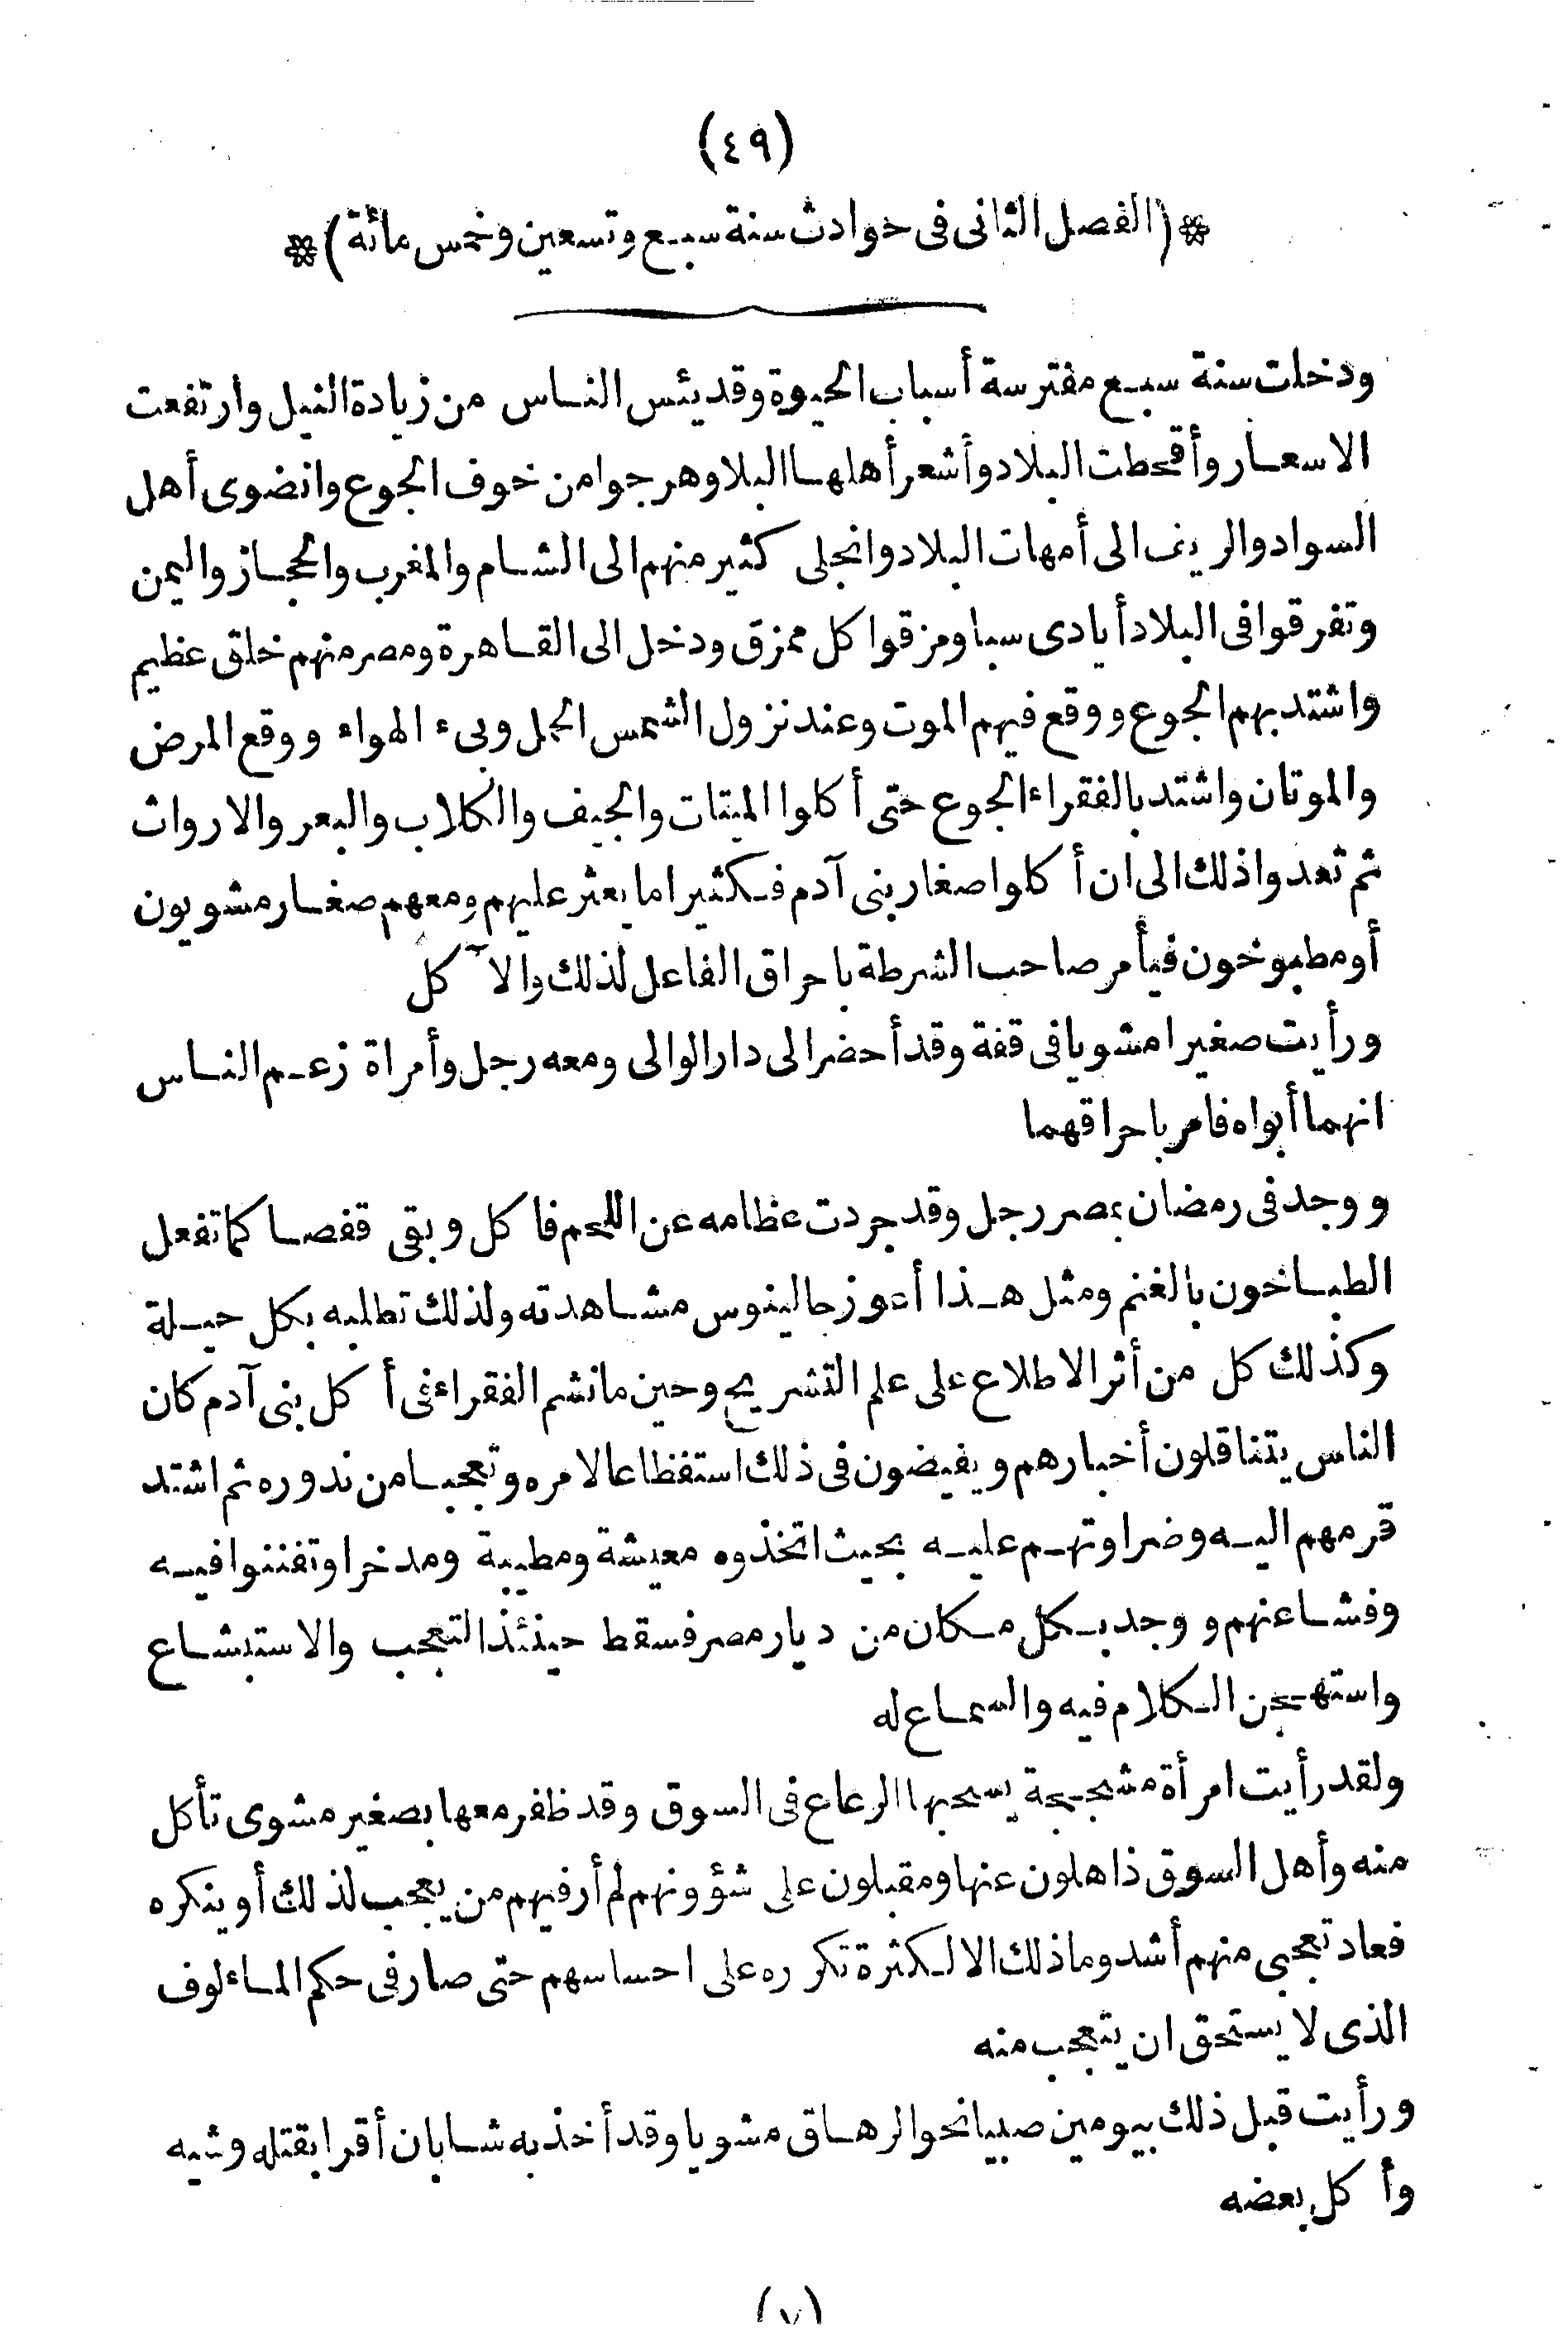 (٤٩)
*(الفصل الثانى فى حوادث سنة سبع وتسعين وخمس مائة)*
ودخلت سنة سبع مفترسة أسباب الحيوة وقد يئس الناس من زيادة النيل وارتفعت
الاسعار وأقحطت البلاد وأشعر أهلها البلا وهرجوا من خوف الجوع وانضوى أهل
السواد والريف الى أمهات البلاد وانجلى كثير منهم الى الشام والمغرب والحجاز واليمن
وتفرقوا فى البلاد أيادى سبا ومزقوا كل ممزق ودخل الى القاهرة ومصر منهم خلق عظيم
واشتد بهم الجوع ووقع فيهم الموت وعند نزول الشمس الحمل وبىء الهواء ووقع المرض
والموتان واشتد بالفقراء الجوع حتى أكلوا الميتات والجيف والكلاب والبعر والارواث
ثم تعدوا ذلك الى ان أكلوا صغار بنى آدم فكثيرا ما يعثر عليهم ومعهم صغار مشويون
أو مطبوخون فيأمر صاحب الشرطة باحراق الفاعل لذلك والآكل
ورأيت صغيرا مشويا فى قفة وقد أحضر الى دار الوالى ومعه رجل وأمراة زعم الناس
انهما أبواه فامر باحراقهما
ووجد فى رمضان بمصر رجل وقد جردت عظامه عن اللحم فاكل وبقى قفصا كما تفعل
الطباخون بالغنم ومثل هذا أعوز جالينوس مشاهدته ولذلك تطلبه بكل حيلة
وكذلك كل من أثر الاطلاع على علم التشريح وحين ما نشم الفقراء فى أكل بنى آدم كان
الناس يتناقلون أخبارهم ويفيضون فى ذلك استفظاعا لامره وتعجبا من ندوره ثم اشتد
قرمهم اليه وضراوتهم عليه بحيث اتخذوه معيشة ومطيبة ومدخرا وتفننوا فيه
وفشا عنهم ووجد بكل مكان من ديار مصر فسقط حينئذ التعجب والاستبشاع
واستهجن الكلام فيه والسماع له
ولقد رأيت امرأة مشججة يسحبها الرعاع فى السوق وقد ظفر معها بصغير مشوى تأكل
منه وأهل السوق ذاهلون عنها ومقبلون على شؤونهم لم أر فيهم من يعجب لذلك أو ينكره
فعاد تعجبى منهم أشد وما ذلك الا لكثرة تكرره على احساسهم حتى صار فى حكم الماءلوف
الذى لا يستحق ان يتعجب منه
ورأيت قبل ذلك بيومين صبيا نحو الرهاق مشويا وقد أخذ به شابان أقرا بقتله وشيه
وأكل بعضه
(٧)